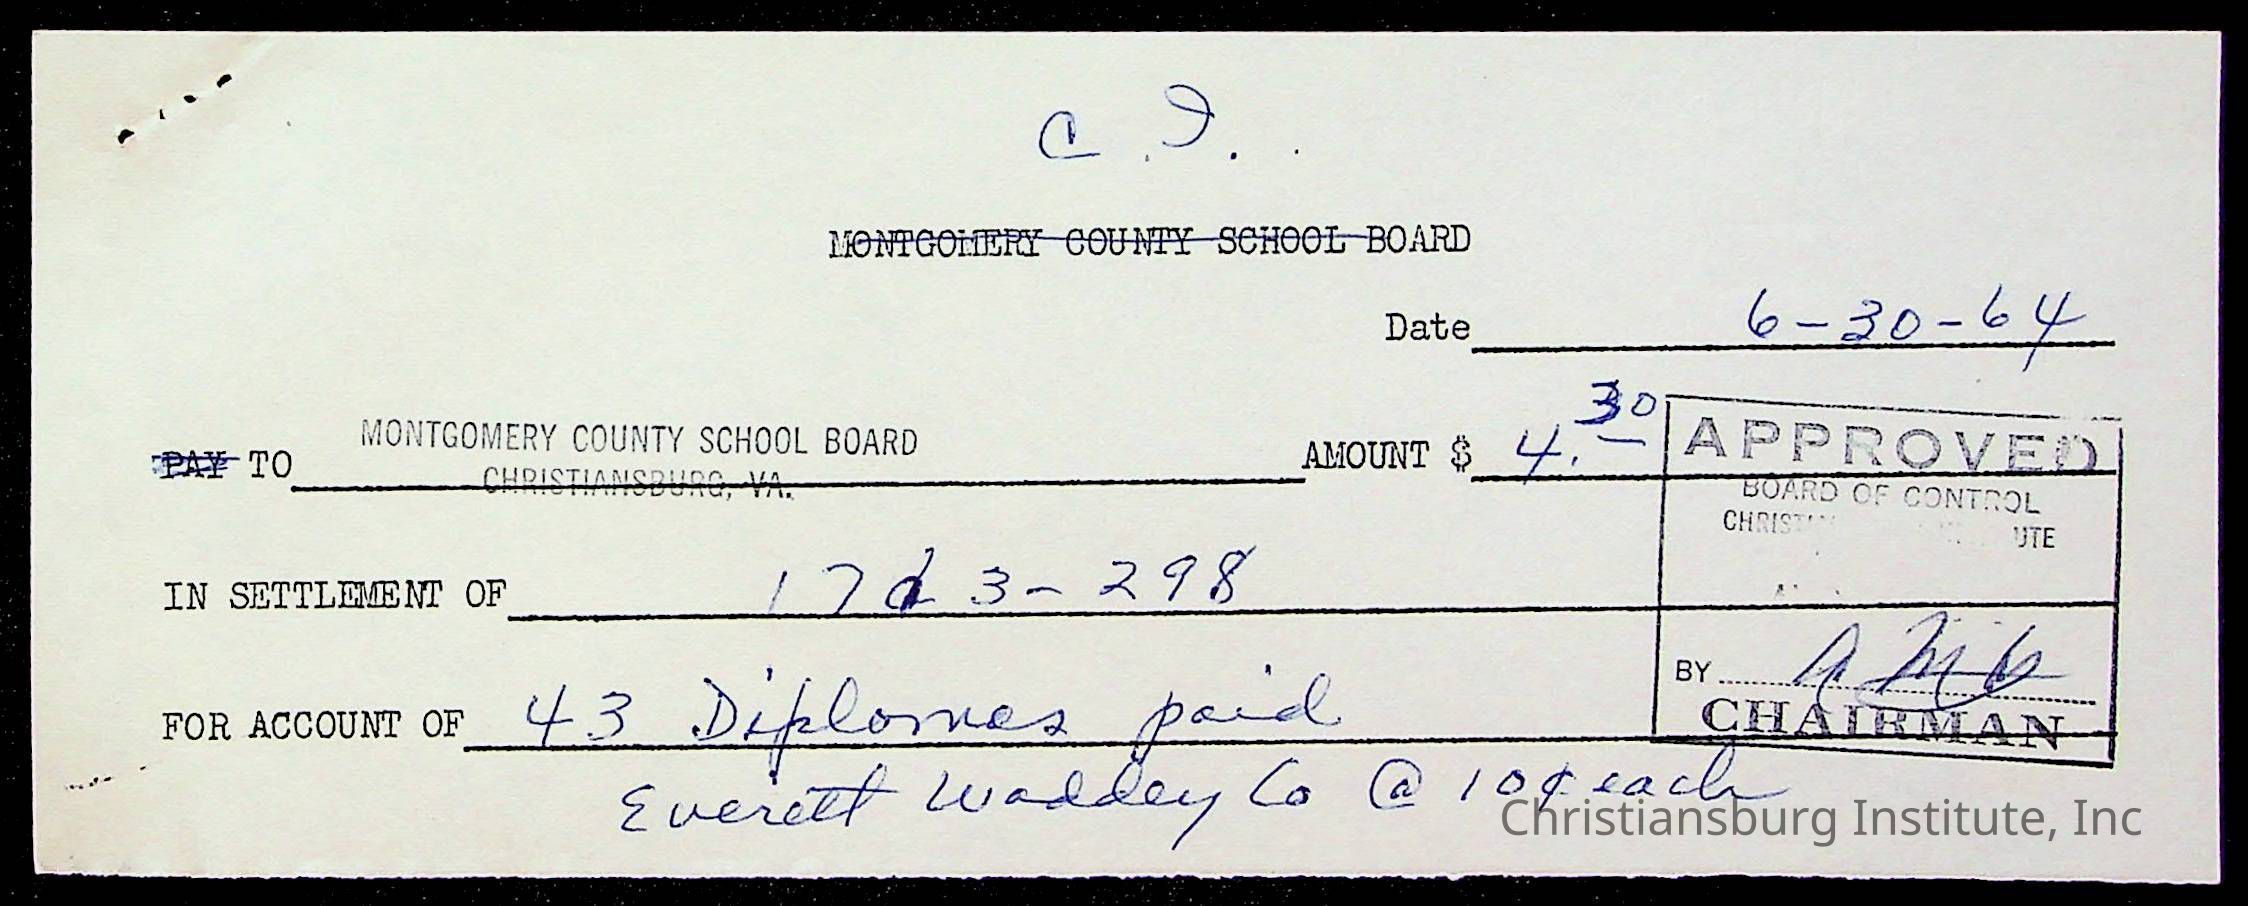 C.I.
MONTGOMERY COUNTY SCHOOL BOARD
Date 6-30-64
PAY TO MONTGOMERY COUNTY SCHOOL BOARD
CHRISTIANSBURG, VA.
AMOUNT $ 4.30
APPROVED
BOARD OF CONTROL
IN SETTLEMENT OF 17d3-298
BY
CHAIRMAN
FOR ACCOUNT OF 43 Diplomas paid
Everett Waddey Co @ 10¢ each
Christiansburg Institute, Inc